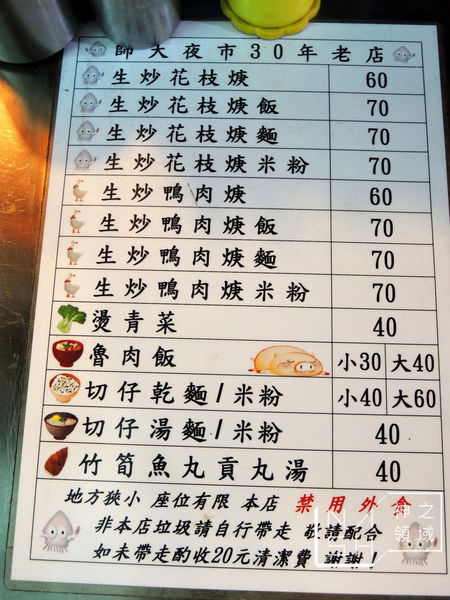 師大夜市30年老店
生炒花枝焿 60
生炒花枝焿飯 70
生炒花枝焿麵 70
生炒花枝焿米粉 70
生炒鴨肉焿 60
生炒鴨肉焿飯 70
生炒鴨肉焿麵 70
生炒鴨肉焿米粉 70
燙青菜 40
魯肉飯 小30 大40
切仔乾麵/米粉 小40 大60
切仔湯麵/米粉 40
竹筍魚丸貢丸湯 40
地方狹小 座位有限 本店 禁用外食
非本店垃圾請自行帶走 敬請配合
如未帶走酌收20元清潔費 謝謝
神之
領域